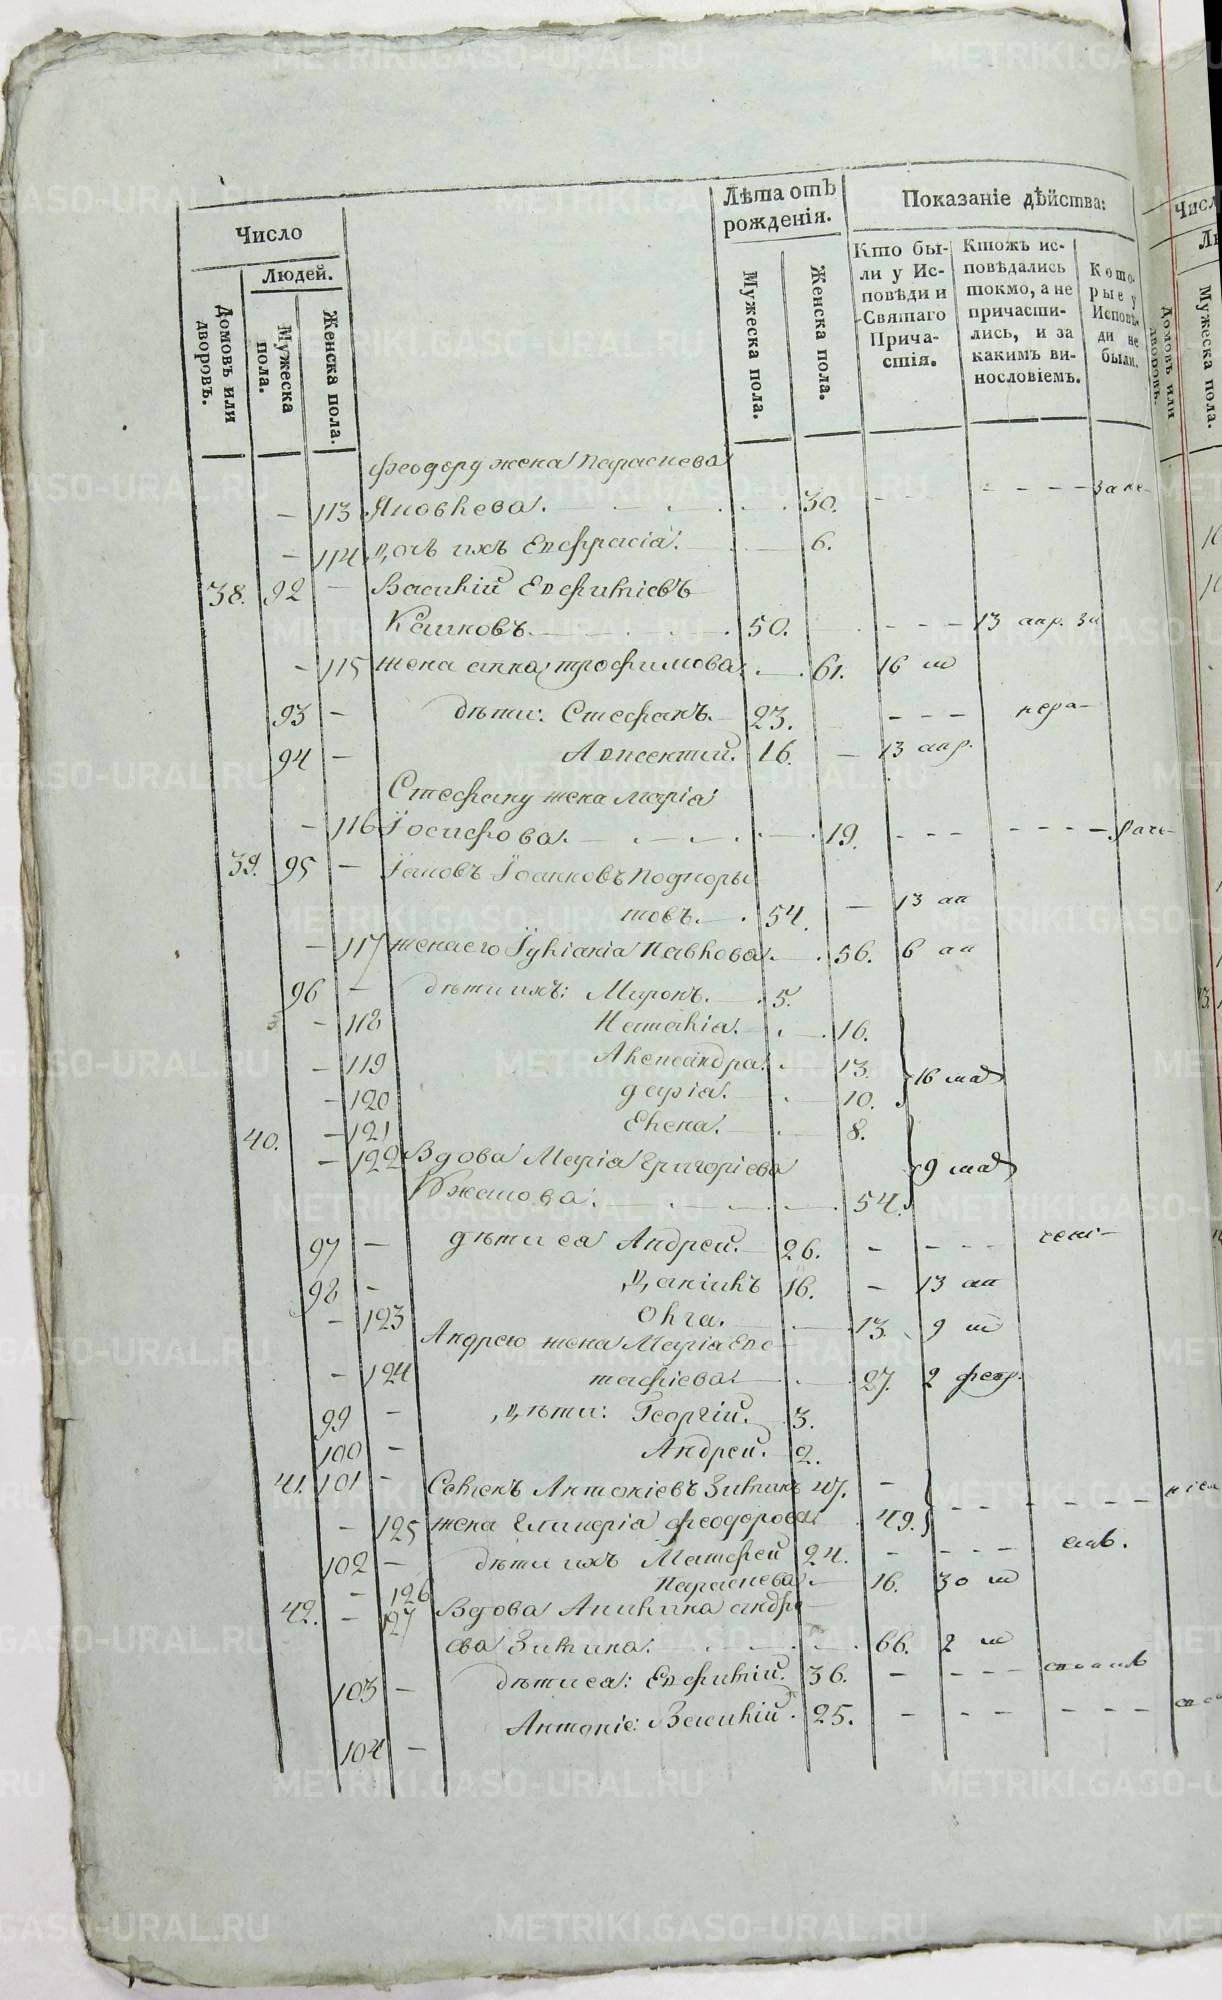 Число
Людей.
Домовъ или дворовъ.
Мужеска пола.
Женска пола.
Лѣта отъ рожденія.
Мужеска пола.
Женска пола.
Показаніе дѣйства:
Кто были у Исповѣди и Святаго Причастія.
Ктожъ исповѣдались токмо, а не причастились, и за какимъ винословіемъ.
Которые у Исповѣди не были.
Феодору жена Параскева
– 113 Яковлева. 30.
– 114 дочь ихъ Евфрасіа. 6.
38. 92 – Василій Евфиміевъ
Кашковъ. 50. 13 апр. за
– 115 жена анна трофимова 61. 16 м
93 – дѣти: Стефанъ. 23.
94 – Авксентій. 16. – 13 апр.
Стефану жена маріа
– 116 Іосифова. 19.
39. 95 – Іаковъ Іоанновъ Подкоры
товъ. 54. – 13 ап
– 117 жена его Іуліаніа Павлова. 56. 6 ап
96 – дѣти ихъ: Миронъ. 5.
– 118 Наталіа. 16.
– 119 Александра. 13. 16 мад
– 120 даріа. 10.
– 121 Елена. 8.
40. – 122 Вдова Маріа Григоріева 9 мад
54.
97 – дѣти ея Андрей. 26. –
98 – Даніилъ 16. – 13 ап
– 123 Олга. 13. 9 м
Андрею жена Маріа Евс
– 124 тафіева. 27. 2 февр.
99 – дѣти: Георгій. 3.
100 – Андрей. 2.
41. 101 – Семенъ Антоніевъ Зиминъ 47. –
– 125 жена Гликеріа феодорова 49.
102 – дѣти ихъ Матфей 24. –
– 126 Параскева. 16. 30 м
42. – 127 Вдова Акилина андре
ева Зимина. 66. 2 м
103 – дѣти еа: Евфимій. 36. –
104 – Антоніе: Василій. 25. –
METRIKI.GASO-URAL.RU